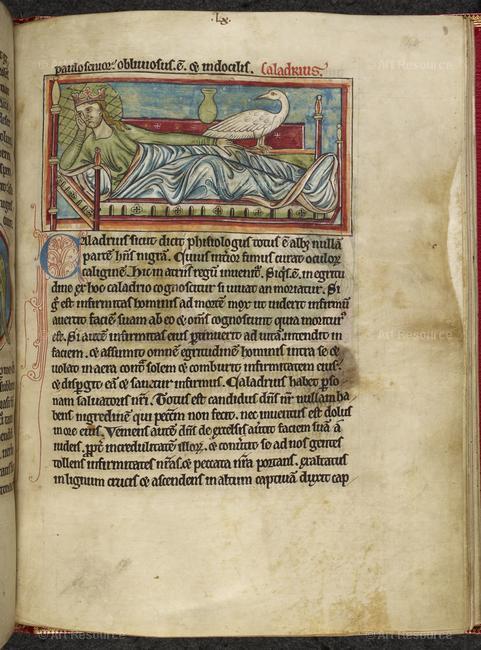 .lx.
paulo seuior. obliuiosus. ē. ⁊ indocilis. Caladrius.
Caladrius sicut dicit phisiologus totus ē alb⁹ nullā
partē hn̄s nigrā. Cuius interior fimus curat oculoꝝ
caliginē. hic in atriis regū inuenit᷑. Siq̇s ē. in egritu
dine ex hoc caladrio cognoscitur si uiuat an moriatur. Si
g̊ est infirmitas hominis ad mortē mox ut uiderit infirmū
auertit faciēm suam ab eo ⁊ om̄s cognoscunt quia moritur⁹
est. Si autē infirmitas eius ꝑtinuerit ad uitā. intendit in
faciem. ⁊ assumit omnē egritudinē hominis intra se ⁊
uolat in aera cont̄ solem ⁊ comburit infirmitatem eius.
⁊ disꝑgit eā ⁊ sanatur infirmus. Caladrius habet ꝑso
nam saluatoris nr̄i. Totus est candidus dn̄s nr̄ nullam ha
bens nigredinē qui peccm̄ non fecit. nec inuentus est dolus
in ore eius. Veniens autē dn̄s de excelsis au̇tit faciem suā a
iudeis. ꝓpt̄ incredulitatē illoꝝ. ⁊ con̄tit se ad nos gentes
tollens infirmitates nr̄as. ⁊ peccata nr̄a portans. exaltatus
in lignum crucis ⁊ ascendens in altum captiuā duxit cap
© Art Resource
© Art Resource
© Art Resource
© Art Resource
© Art Resource
© Art Resource